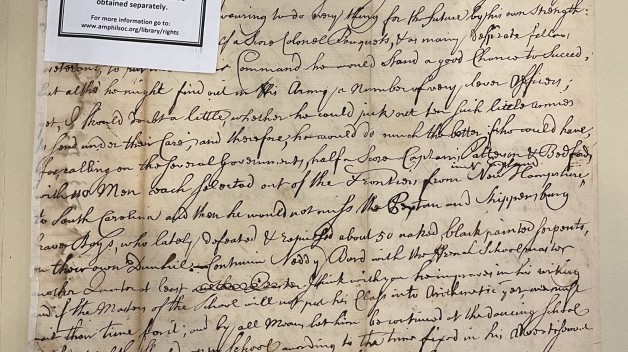 obtained separately.
For more information go to:
www.amphilsoc.org/library/rights
to do every thing for the future by his own Strength:
if a Score Colonel Bouquets, & as many desperate fellows
Command he would Stand a good Chance to Succeed,
but altho' he might find out in His Army a Number of very clever Officers;
yet, I should doubt a little, whether he could pick out ten such little armies
to send under their Care; and therefore, he would do much the better if he could have,
for calling on the several Governments, half a Score Captain Patterson & Bedfords
with 110 Men each selected out of the Frontiers from New Hampshire
to South Carolina and then he would not miss the Paxton and Shippensburg
brave Boys, who lately defeated & repulsed about 50 naked black painted serpents,
in their own Dunhil. Continue Neddy Burd with the French Schoolmaster
another Quarter at least I think with you he improves in his writing
and if the Master of the School will not put his Class into Arithmetic yet we must
wait their time for it; and by all Means let him be continued at the dancing School
School according to the time fixed in his Advertisement